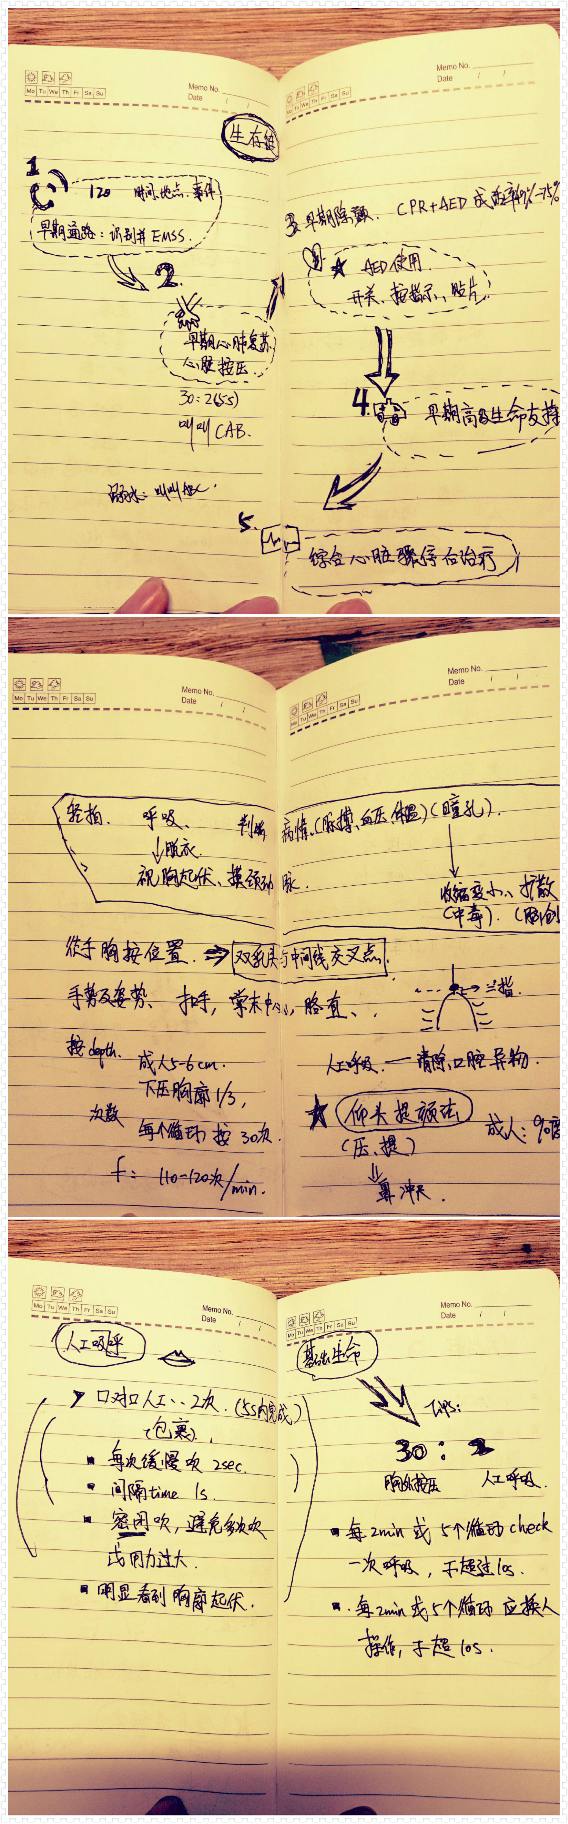 Memo No.
Date / /
Mo Tu We Th Fr Sa Su
生存链
1
120 时间、地点、事件
早期通路：识别并EMSS.
2.
早期心肺复苏
心脏按压.
30:2(5s)
叫叫CAB.
溺水：叫叫ABC.
Memo No.
Date / /
Mo Tu We Th Fr Sa Su
3. 早期除颤. CPR+AED
★ AED使用.
开关、按指示、贴片.
4.
早期高级生命支持
5.
综合心脏骤停后治疗
Memo No.
Date / /
Mo Tu We Th Fr Sa Su
轻拍. 呼吸、 判断
↓脱衣.
视胸起伏、摸颈动
徒手胸按位置. ⇒
手势及姿势、扣手,
按depth. 成人5-6cm.
下压胸廓1/3,
次数 每个循环按30次.
f: 110-120次/min.
Memo No.
Date / /
Mo Tu We Th Fr Sa Su
病情.(脉搏、血压、体温)(瞳孔).
脉.
收缩变小、扩散
(中毒). (脑创
双乳头与中间线交叉点.
掌末中心, 胳直、.
兰指.
人工呼吸. — 清除口腔异物.
★ 仰头提颏法 成人: 90度
(压、提)
鼻冲天.
Memo No.
Date / /
Mo Tu We Th Fr Sa Su
人工吸呼
口对口人工..2次. (5s内完成)
(包裹).
每次缓慢吹 2sec.
间隔time 1s.
密闭吹, 避免多次吹
或用力过大.
明显看到胸廓起伏.
Memo No.
Date / /
Mo Tu We Th Fr Sa Su
基础生命
Tips:
30 : 2
胸外按压 人工呼吸.
每2min或5个循环check
一次呼吸, 不超过10s.
每2min或5个循环应换人
操作, 不超10s.